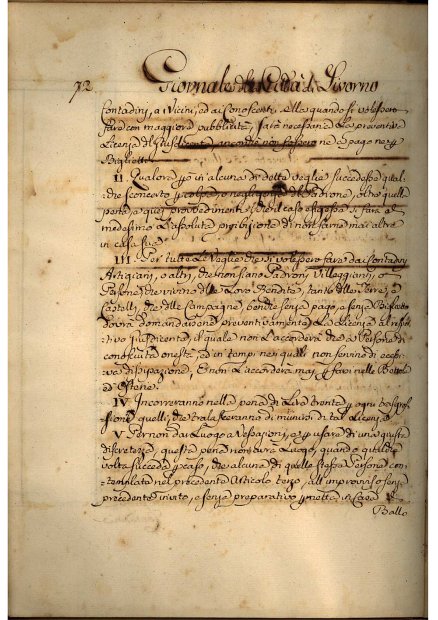 72
Giornale della Città di Livorno
Contadini, a Vicini, ed ai Conoscenti, e quando si volessero
fare con maggiore pubblicità, sarà necessaria la preventiva
Licenza del Giusdicente, ancorchè non fossero nè a pago nè p
Biglietti.
II Qualora poi in alcuna di dette veglie succedesse qual-
che sconcerto p colpa, o negligenza del Padrone, oltre quelle
parti, a quei provvedimenti, che il caso esigesse si farà al
medesimo l'assoluta proibizione di non farne mai altre
in casa sua.
III. Per tutte le Veglie che si volessero fare da Contadini
Artigiani, o altri, che non siano Padroni Villeggianti, o
Persone, che vivano delle Loro Rendite, tanto delle Terre, o
Castelli, che delle Campagne, benchè senza pago, e senza Biglietto
dovrà domandarsene preventivamente la Licenza al rispet-
tivo Giusdicente, il quale non l'accorderà che a Persone di
conosciuta onestà, ed in tempi nei quali non servino di ecces-
siva dissipazione, e non l'accorderà mai p farsi nelle Bettole
ed Osterie.
IV Incorreranno nella pena di Lire trenta p ogni trasgres-
sione quelli, che tralasceranno di munirsi di tal Licenza.
V Per non dar Luogo a Vessazioni, e p usare di una giusta
discretezza, questa pena non avrà Luogo, quando qualche
volta succeda p caso, che alcuna di quelle stesse Persone con-
template nel precedente Articolo terzo, all'improviso senza
precedente invito, e senza preparativo p mettersi in Casa il
Ballo